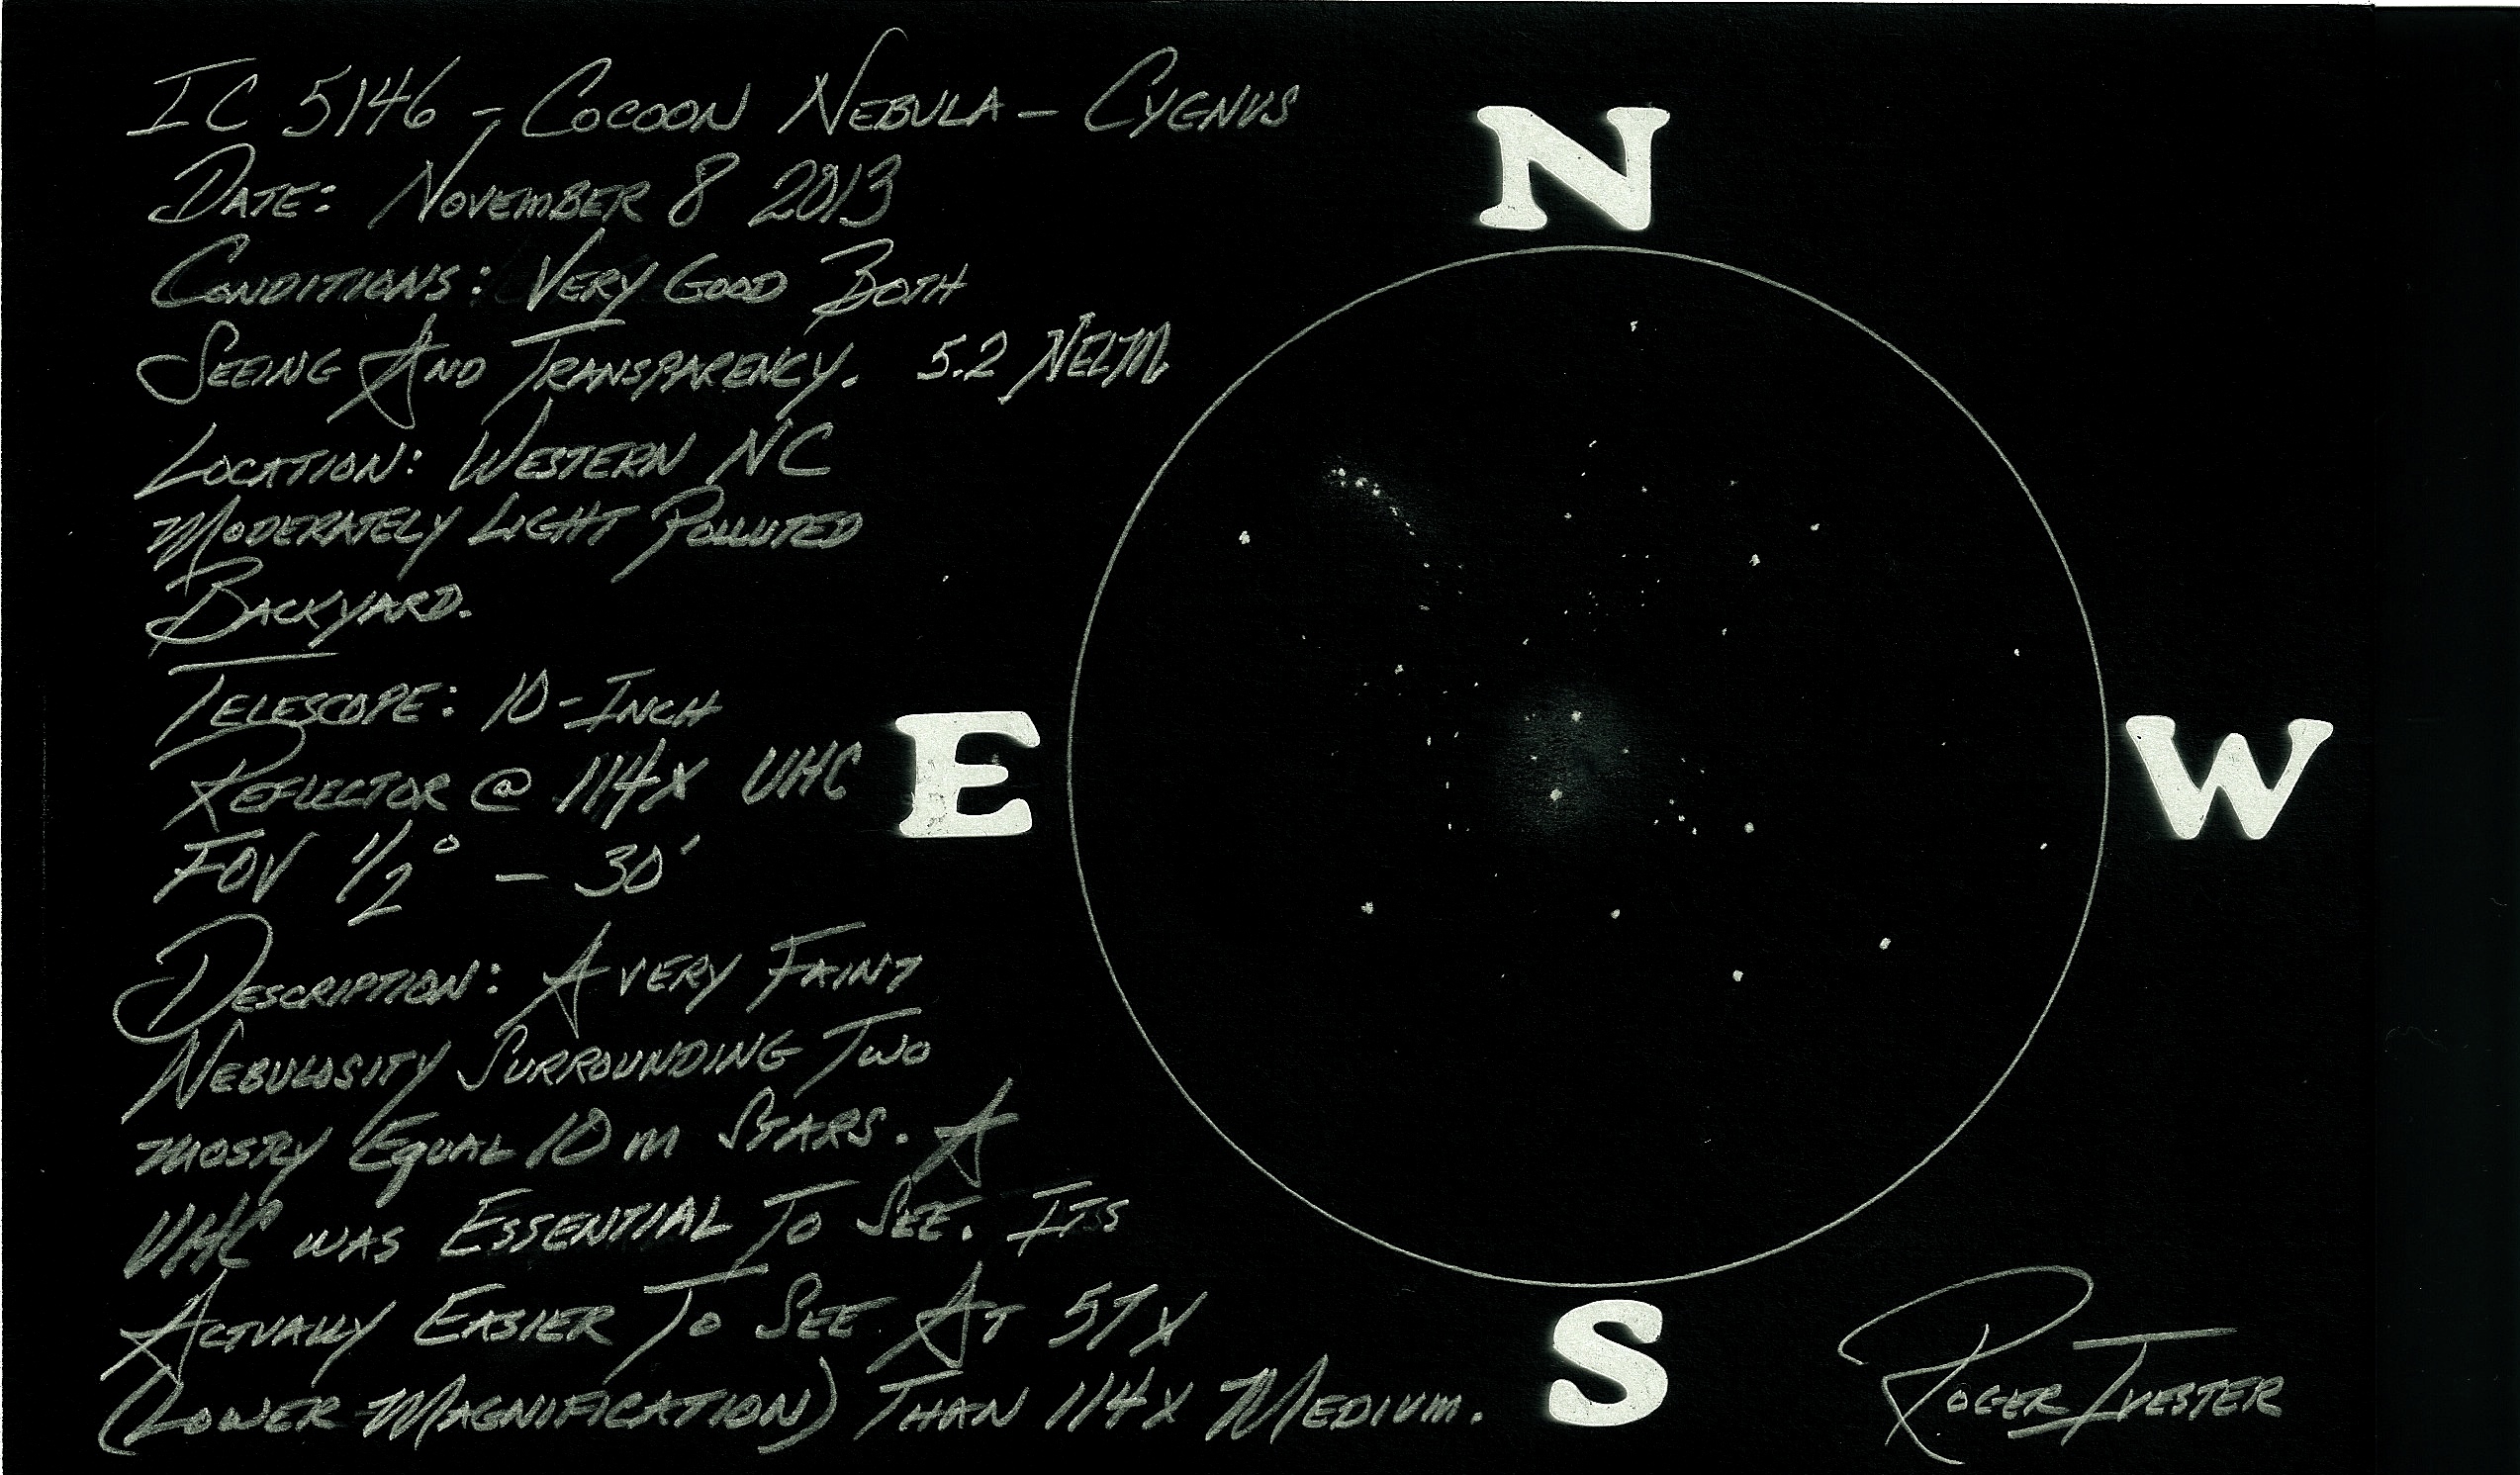 IC 5146 - COCOON NEBULA - CYGNUS
DATE: NOVEMBER 8 2013
CONDITIONS: VERY GOOD BOTH
SEEING AND TRANSPARENCY. 5.2 NELM
LOCATION: WESTERN NC
MODERATELY LIGHT POLLUTED
BACKYARD.
TELESCOPE: 10-INCH
REFLECTOR @ 114X UHC
FOV 1/2° - 30'
DESCRIPTION: A VERY FAINT
NEBULOSITY SURROUNDING TWO
MOSTLY EQUAL 10 M STARS. A
UHC WAS ESSENTIAL TO SEE. ITS
ACTUALLY EASIER TO SEE AT 57X
(LOWER MAGNIFICATION) THAN 114X MEDIUM.
N
E
W
S
ROGER IVESTER